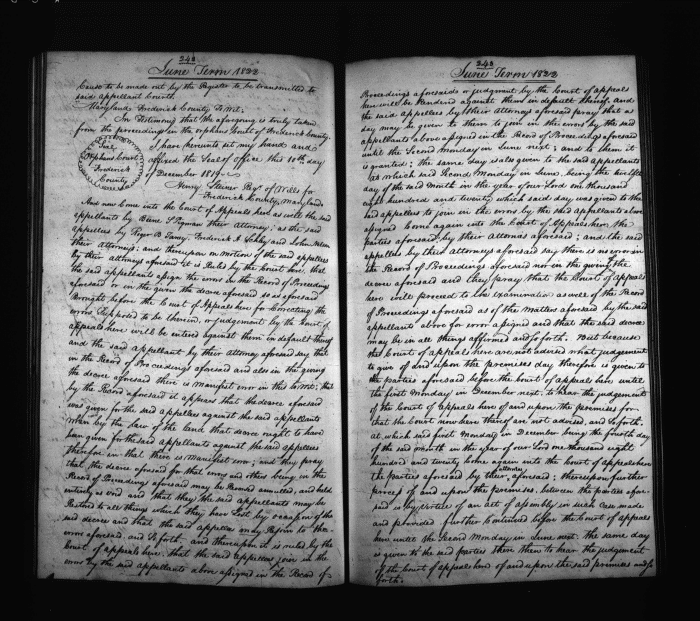 242
June Term 1822
Cause to be made out by the Register to be transmitted to
said appellant Court
Maryland Frederick County to wit;
In Testimony that the aforegoing is truly taken
from the proceedings in the orphans Court of Frederick County
Seal
Orphans Court
Frederick
County
I have hereunto set my hand and
affixed the Seal of office this 10th day
of December 1819
Henry Steiner Regr of Wills for
Frederick County, Maryland
And now come into the Court of Appeals here as well the said
appellants by their Attorney; as the said
appellees by Roger B. Taney, Frederick A. Schley and John Nelson
their Attorneys; and thereupon on motion of the said appellees
by their attorneys aforesaid it is Ruled by the Court here, that
the said appellants assign the errors in the Record of Proceedings
aforesaid or in the given the decree aforesaid so as aforesaid
Brought before the Court of Appeals here for Correcting the
errors Supposed to be therein, or judgement by the Court of
appeals here will be entered against them in default thereof
and the said appellant by their attorney aforesaid say that
in the Record of Proceedings aforesaid and also in the giving
the decree aforesaid there is manifest error in this Court; that
by the Record aforesaid it appears that the decree aforesaid
was given for the said appellees against the said appellants
when by the law of the land that decree ought to have
been given for the said appellants against the said appellees
therefor in that there is manifest error; and they pray
that the decree aforesaid for that error and others being in the
Record of Proceedings aforesaid may be Reversed annulled, and held
entirely as void and that they the said appellants may be
Restored to all things which they have Lost by occasion of the
said decree and that the said appellees may Rejoin to the
errors aforesaid, and So forth. and thereupon it is ruled by the
Court of appeals here, that the said appellees join in the
errors by the said appellants above assigned in the Record of
243
June Term 1822
Proceedings aforesaid or judgment by the Court of appeals
here will be Rendered against them in default thereof. and
the said appellees by their Attorneys aforesaid pray that a
day may be given to them to join in the errors by the said
appellants above assigned in the Record of Proceedings aforesaid
until the Second Monday in June next; and to them it
is granted; the same day is also given to the said appellants
at which said Second Monday in June, being the twelfth
day of the said Month in the year of our Lord one thousand
eight hundred and twenty which said day was given to the
said appellees to join in the errors by the said appellants above
assigned Come again into the Court of Appeals here, the
parties aforesaid by their Attornies aforesaid; and the said
appellees by their Attorneys aforesaid say there is no error in
the Record of Proceedings aforesaid nor in the giving of the
decree aforesaid and they pray that the Court of Appeals
here will proceed to the examination as well of the Record
of Proceedings aforesaid as of the Matters aforesaid by the said
appellants above for error assigned and that the said decree
may be in all things affirmed and so forth. But because
this Court of appeals here are not advised what judgement
to give of and upon the premises day therefore is given to
the parties aforesaid before the Court of appeals here until
the first Monday in December next. to hear the judgement
of the Court of Appeals here of and upon the premises for
that the Court now here thereof are not advised, and So forth.
at which said first Monday in December being the fourth day
of the said month in the year of our Lord one thousand eight
hundred and twenty Come again into the Court of Appeals here
the parties aforesaid by their attornies aforesaid; thereupon further
process of and upon the premises, between the parties afore-
said is by virtue of an act of assembly in such case made
and provided further Continued before the Court of appeals
here until the Second Monday in June next the same day
is given to the said parties there then to hear the judgement
of the Court of appeals here of and upon the said premises and so
forth.